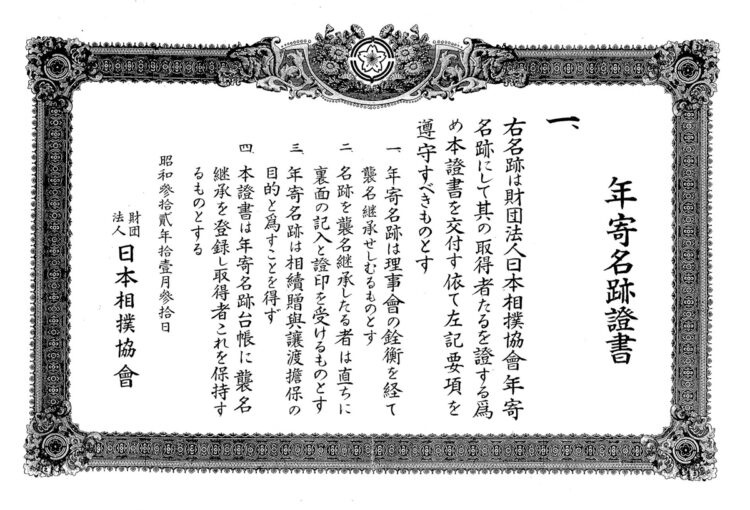 年寄名跡證書
一、
右名跡は財団法人日本相撲協會年寄
名跡にして其の取得者たるを證する爲
め本證書を交付す依て左記要項を
遵守すべきものとす
一、年寄名跡は理事會の銓衡を経て
襲名継承せしむるものとす
二、名跡を襲名継承したる者は直ちに
裏面の記入と證印を受けるものとす
三、年寄名跡は相續贈與譲渡擔保の
目的と爲すことを得ず
四、本證書は年寄名跡台帳に襲名
継承を登録し取得者これを保持す
るものとする
昭和参拾貳年拾壹月参拾日
財団法人 日本相撲協會